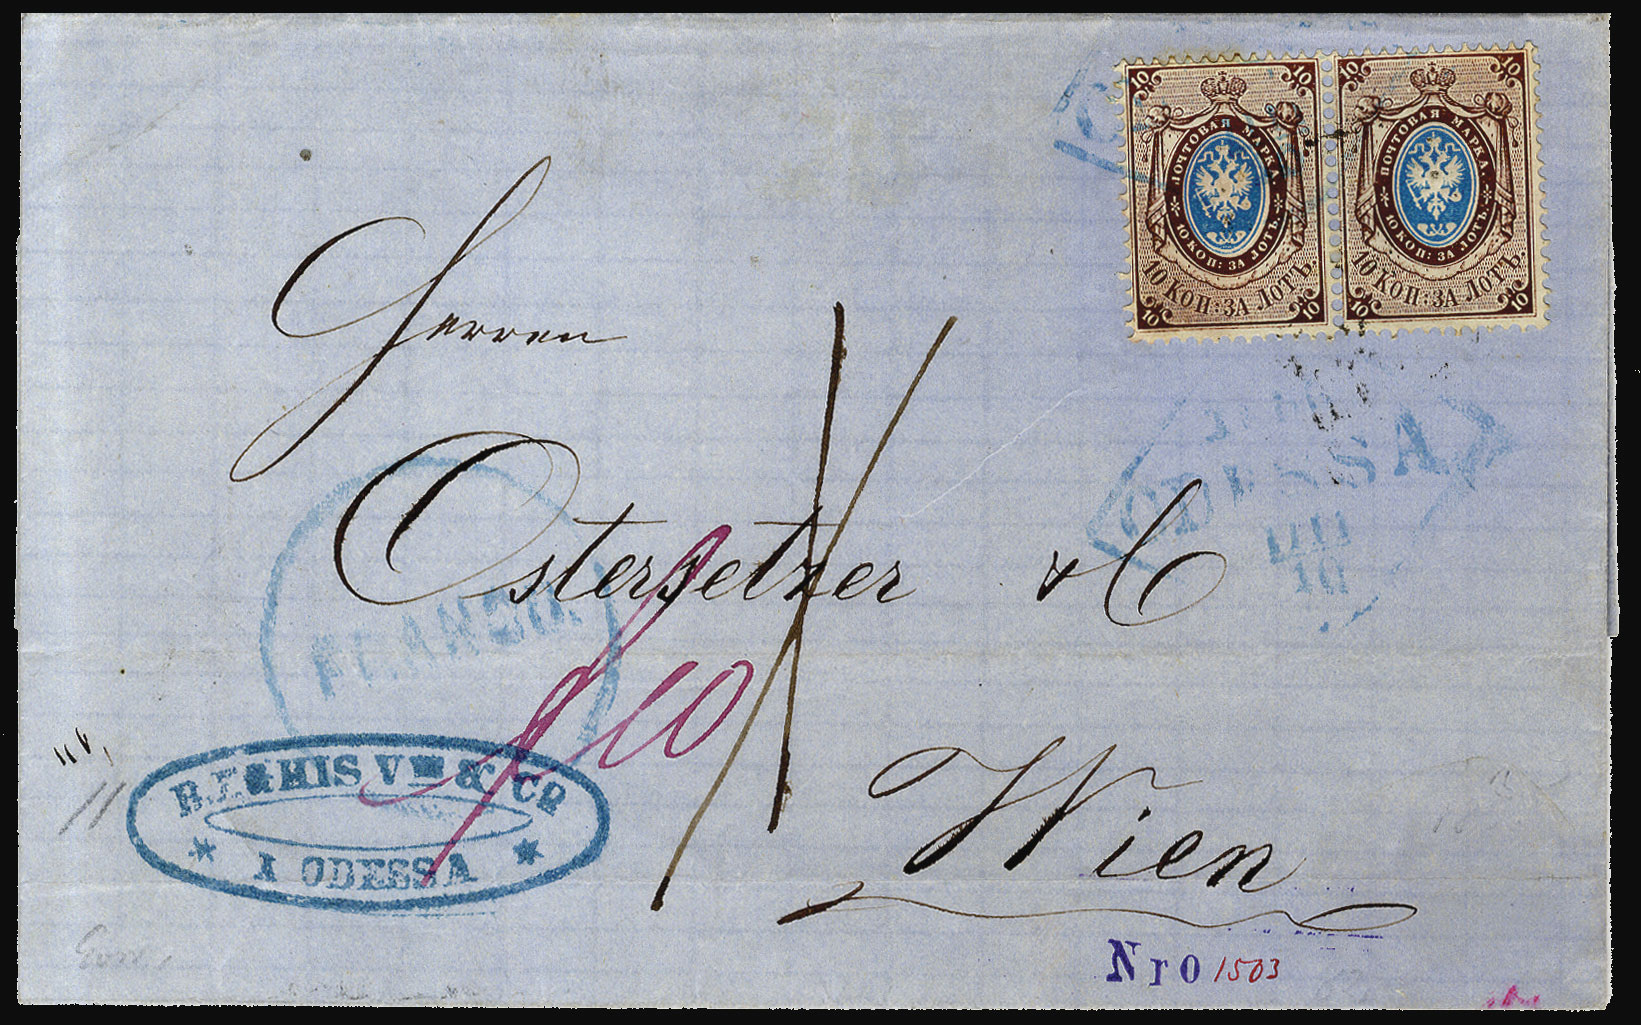 10 10 10 10
ПОЧТОВАЯ МАРКА ПОЧТОВАЯ МАРКА
10 КОП: ЗА ЛОТЪ. 10 КОП: ЗА ЛОТЪ.
10 КОП: ЗА ЛОТЪ. 10 КОП: ЗА ЛОТЪ.
10 10 10 10
Herren
ODESSA
Ostersetzer & C
10
& CO
A ODESSA
Wien
Nro 1503